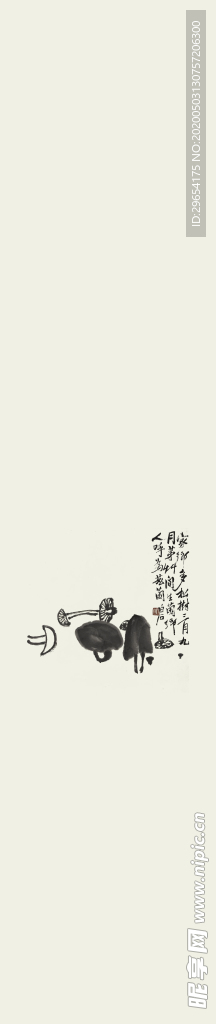 ID:29654175 NO:20200503130757206300
家乡多松树三月九
月茅草间生菌乡
人呼为
白石
昵享网 www.nipic.cn